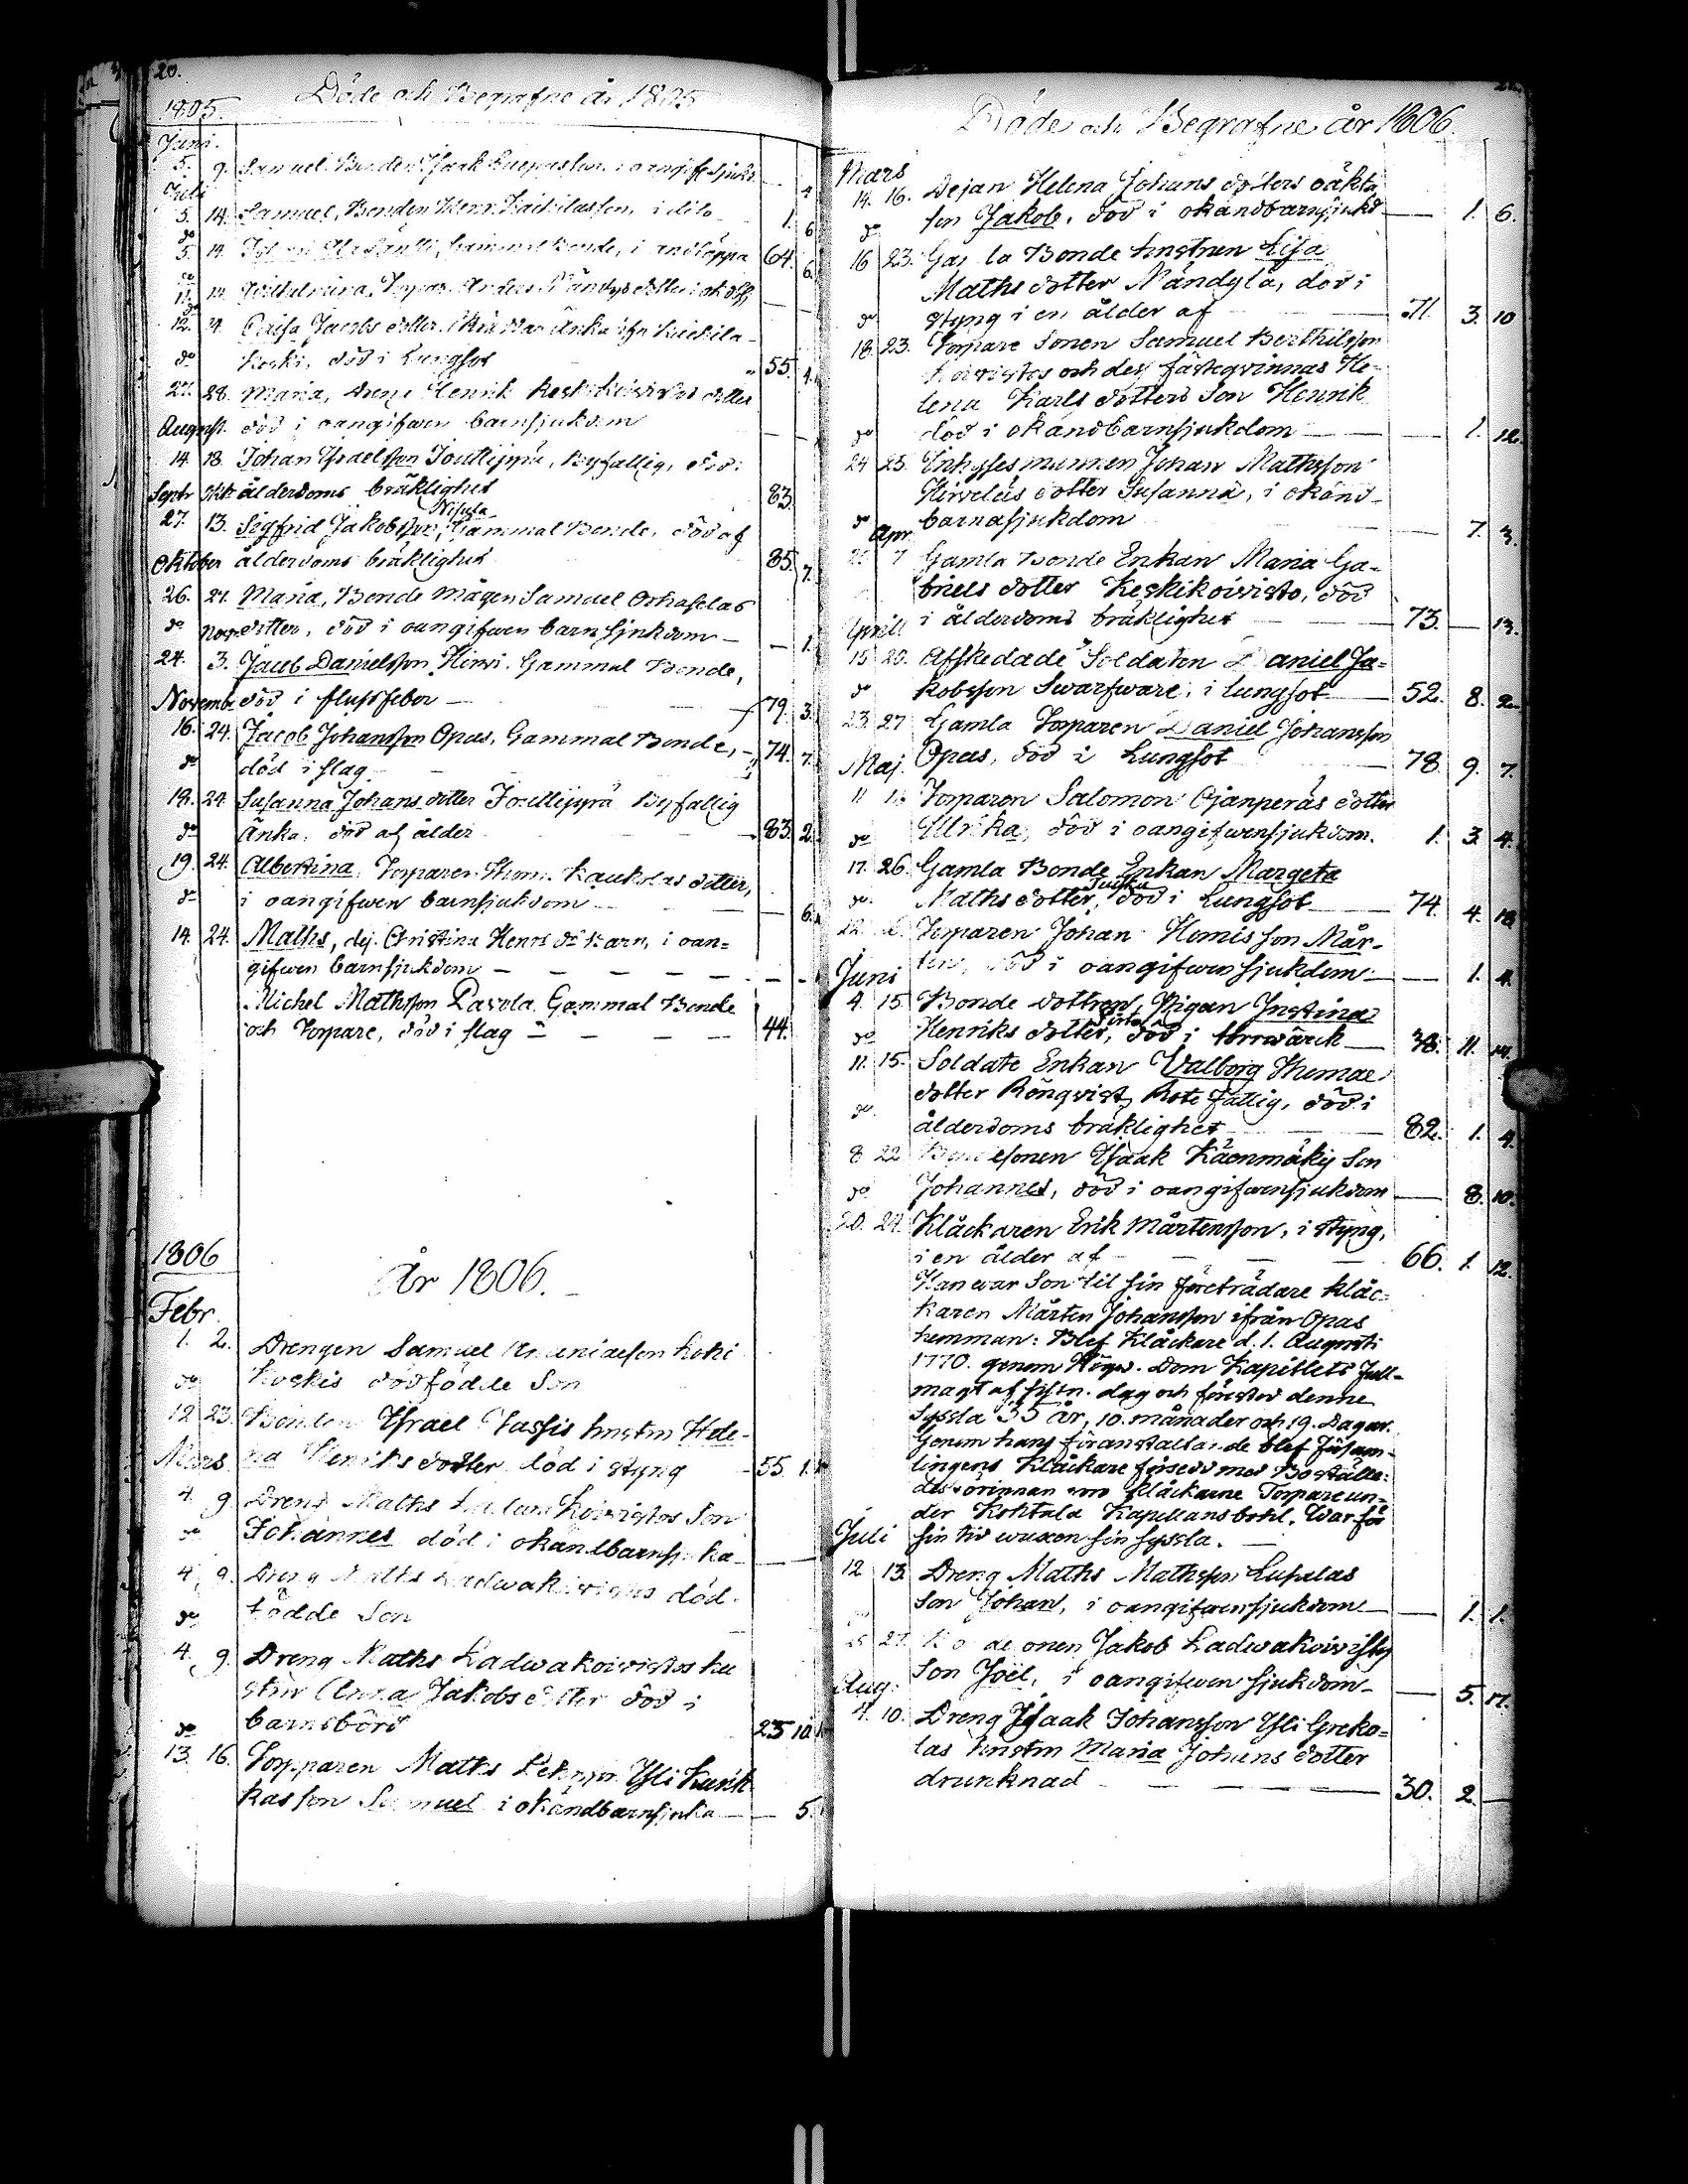 20.
Döde och Begrafne år 1805
1805.
Juni.
5. 9. Samuel Bonden Isaak i oangift sjukd. 4
Juli
5. 14. Samuel, Bonden i dito 1. 6
do
5. 14. Gammal Bonde, i 64. 6.
do
11. 14. Wilhelmina, Torpar. Anders dotter
do
12. 14. Caisa Jacobs dotter Änka
do koski, död i Lungsot 55. 4.
27. 28. Maria, Dreng Henrik dotter
August. död i oangifwen barnsjukdom
14. 18. Johan Israelsson Jouttijyrä, Byfattig, död i
Septr Okt. ålderdoms bräklighet 83.
Nisula
27. 13. Sigfrid Jakobsson, Gammal Bonde, död af
Oktober ålderdoms bräklighet 85. 7.
26. 27. Maria, Bonde mågen Samuel Orhaselas
do Novr. dotter, död i oangifwen barnsjukdom — — 1.
24. 3. Jacob Danielsson Hirvi, Gammal Bonde,
Novemb. död i flussfeber — 79. 3.
16. 24. Jacob Johansson Opas, Gammal Bonde, 74. 7.
do död i slag
19. 24. Susanna Johans dotter Jouttijyrä Byfattig
do Änka, död af ålder 83. 2.
19. 24. Albertina, Torparen Kaukolas dotter,
do i oangifwen barnsjukdom — 6.
14. 24. Maths, dej. Christina Henrs dr barn, i oan=
gifwen barnsjukdom — — — — —
Michel Mathsson Pavola, Gammal Bonde
och Torpare, död i slag — — — 44.
1806
År 1806.
Febr.
1. 2. Drengen Samuel
do Koskis dödfödde Son
12 23. Bonden Israel Hassis hustru Hele-
Mars na Henriks dotter död i styng 55. 1.
4. 9 Dreng Maths Koivistos Son
do Johannes död i okändbarnsjuka —
4. 9. Dreng Maths Ladwakoivistos död-
do födde Son
4. 9. Dreng Maths Ladwakoivistos hu
stru Anna Jakobs dotter död i
do barnsbörd 25 10.
13. 16. Torpparen Maths Ysli Kurik
kas son Samuel i okändbarnsjuka — 5.
Döde och Begrafne år 1806.
Mars
14. 16. Dejan Helena Johans dotters oäkta
do son Jakob, död i okändbarnsjukd — 1. 6.
16 23. Gamla Bonde hustrun Lisa
Maths dotter Mändylä, död i
do styng i en ålder af 71. 3. 10
18. 23. Torpare Sonen Samuel Berthilsson
Koivistos och des fästeqvinnas He-
lena Karls dotters Son Henrik
do död i okändbarnsjukdom — 1. 12.
24 25. Inhysses mannen Johan Mathsson
Hirveläs dotter Susanna, i okänd-
do barnasjukdom — 7. 3.
Apr.
7 Gamla Bonde Enkan Maria Ga-
briels dotter Keskikoivisto, död
Aprill i ålderdoms bräklighet 73. — 13.
15 20. Afskedade Soldaten Daniel Ja-
do kobsson Swarfware, i lungsot 52. 8. 2
23. 27 Gamla Torparen Daniel Johansson
Maj. Opas, död i Lungsot 78. 9. 7.
11 Torparen Salomon Ojanperäs dotter
do Ulrika, död i oangifwensjukdom. 1. 3. 4.
17. 26. Gamla Bonde Enkan Margeta
do Maths dotter, död i Lungsot 74. 4. 18
Torparen Johan Hemis son Mår-
Juni ten, död i oangifwensjukdom — 1. 4.
4. 15 Bonde dottren, Pigan Justina
do Henriks dotter, död i 38. 11.
11. 15. Soldate Enkan Valborg Thomae
do. dotter Rönqvist, Rotefattig, död i
ålderdoms bräklighet 82. 1. 4.
8 22 Bondesonen Isaak Käenmäkis Son
do Johannes, död i oangifwensjukdom — 8. 10.
20. 24. Klåckaren Erik Mårtensson, i styng,
i en ålder af — 66. 1. 12.
Han war Son til sin företrädare Klåc-
karen Mårten Johansson ifrån Opas
hemman: Blef Klåckare d. 1. Augusti
1770. genom Högw. Dom Kapitlets Full-
magt af sistn. dag och förestod denne
Syssla 35 år, 10. månader och 19. Dagar.
Genom hans föranstaltande blef Försam-
lingens Klåckare försedd med Boställe:
dessförinnan woro Klåckarne Torpare un-
der Kohtala Kapellansbohl. War för
Juli sin tid wuxen sin syssla. —
12 13. Dreng Maths Mathsson Luhulas
Son Johan, i oangifwensjukdom — 1. 1.
25 27. Jakob Ladwakoivistos
Aug. Son Joël, i oangifwen sjukdom — 5. 17.
4. 10. Dreng Isaak Johansson Ysli Greko=
las hustru Maria Johans dotter
drunknad — 30. 2. —